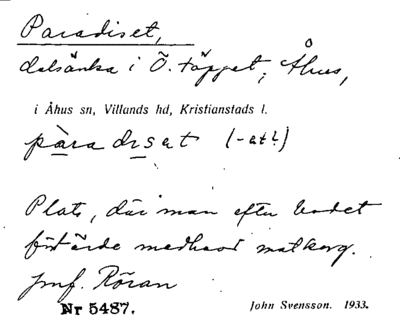 Paradiset,
dalsänka i Ö. täppet, Åhus,
i Åhus sn, Villands hd, Kristianstads l.
pàradisat (-ət?)
Plats, där man efter badet
förtärde medhavd matkorg.
jmf. Röran
Nr 5487. John Svensson. 1933.